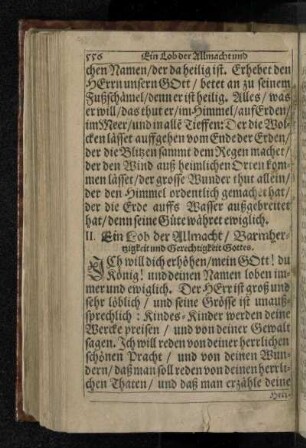 556 Ein Lob der Allmacht und
chen Namen/der da heilig ist. Erhebet den
HErrn unsern GOtt/ betet an zu seinem
Fußschämel/denn er ist heilig. Alles/ was
er will/das thut er/im Himmel/auf Erden/
im Meer/und in allē Tieffen: Der die Wol-
cken lässet auffgehn vom Ende der Erden/
der die Blitzen sammt dem Regen machet/
der den Wind auß heimlichen Orten kom-
men lässet/der grosse Wunder thut allein/
der den Himmel ordentlich gemachet hat/
der die Erde auffs Wasser außgebreitet
hat/denn seine Güte währet ewiglich.
II. Ein Lob der Allmacht/ Barmher-
tzigkeit und Gerechtigkeit Gottes.
ICh will dich erhöhen/mein GOtt! du
König! und deinen Namen loben im-
mer und ewiglich. Der HErr ist groß und
sehr löblich/ und seine Grösse ist unauß-
sprechlich: Kindes-Kinder werden deine
Wercke preisen/ und von deiner Gewalt
sagen. Ich will reden von deiner herrlichen
schönen Pracht/ und von deinen Wun-
dern/daß man soll reden von deinen herrli-
chen Thaten/ und daß man erzähle deine